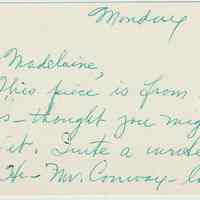 Monday
Madelaine,
This piece is from
s - thought you mig
it. Quite a
He - Mr. Conway -